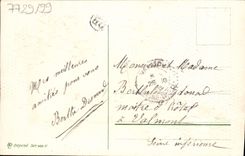 7729/99
Mes meilleures
amitiés pour vous
Berthe
Monsieur et Madame
Berthelot Edouard
maître d'hôtel
à Valmont
Seine inférieure